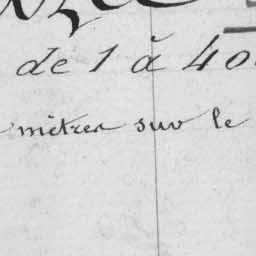 de 1 à 40
mètres sur le